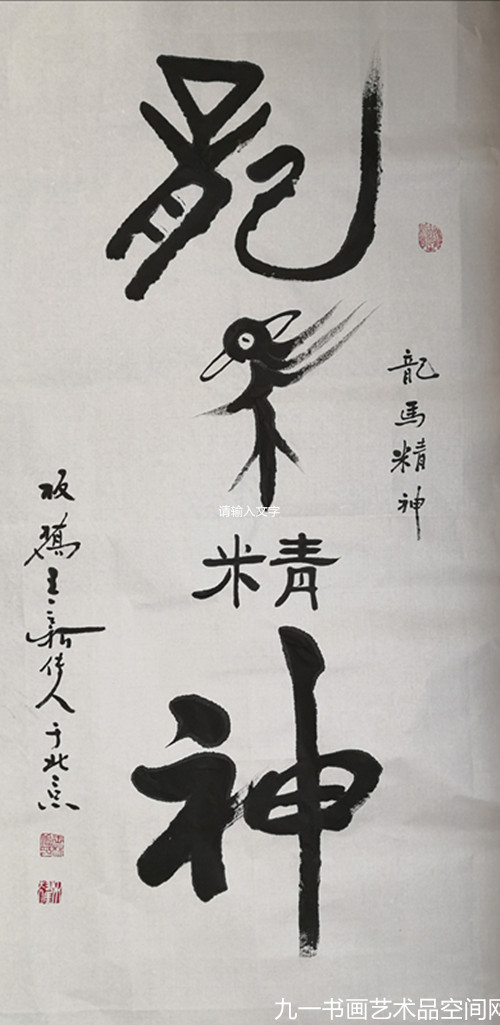 龍馬精神
龍馬精神
板橋王新传人于北京
请输入文字
九一书画艺术品空间网